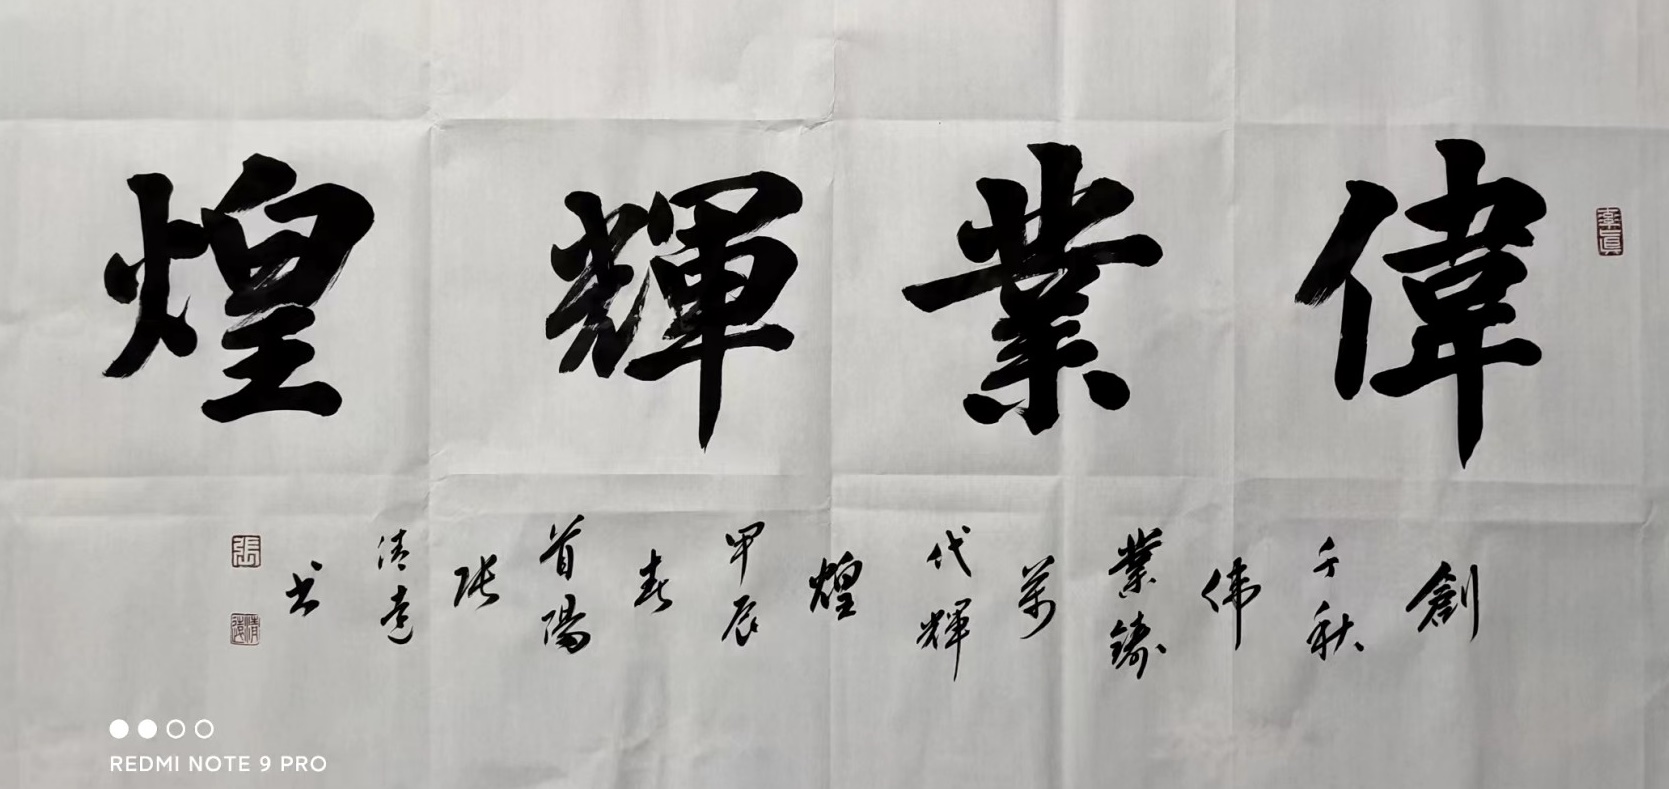 偉業輝煌
創千秋伟業鑄萬代輝煌甲辰春首陽张清遠书
張
清遠
REDMI NOTE 9 PRO